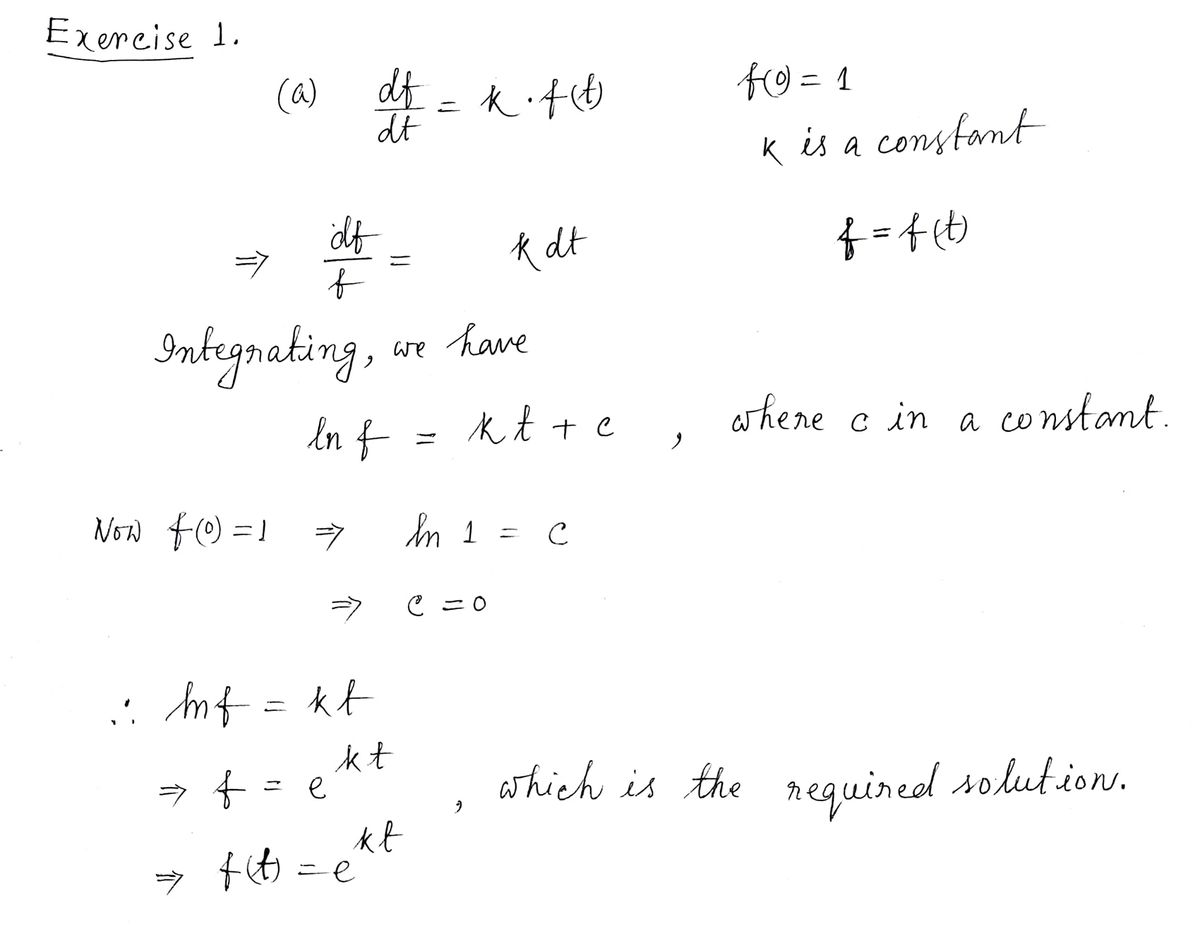 Exercise 1.
(a) df/dt = k · f(t)    f(0) = 1
k is a constant
⇒ df/f = k dt    f = f(t)
Integrating, we have
ln f = kt + c , where c in a constant.
Now f(0) = 1 ⇒ ln 1 = c
⇒ c = 0
∴ ln f = kt
⇒ f = e^kt , which is the required solution.
⇒ f(t) = e^kt